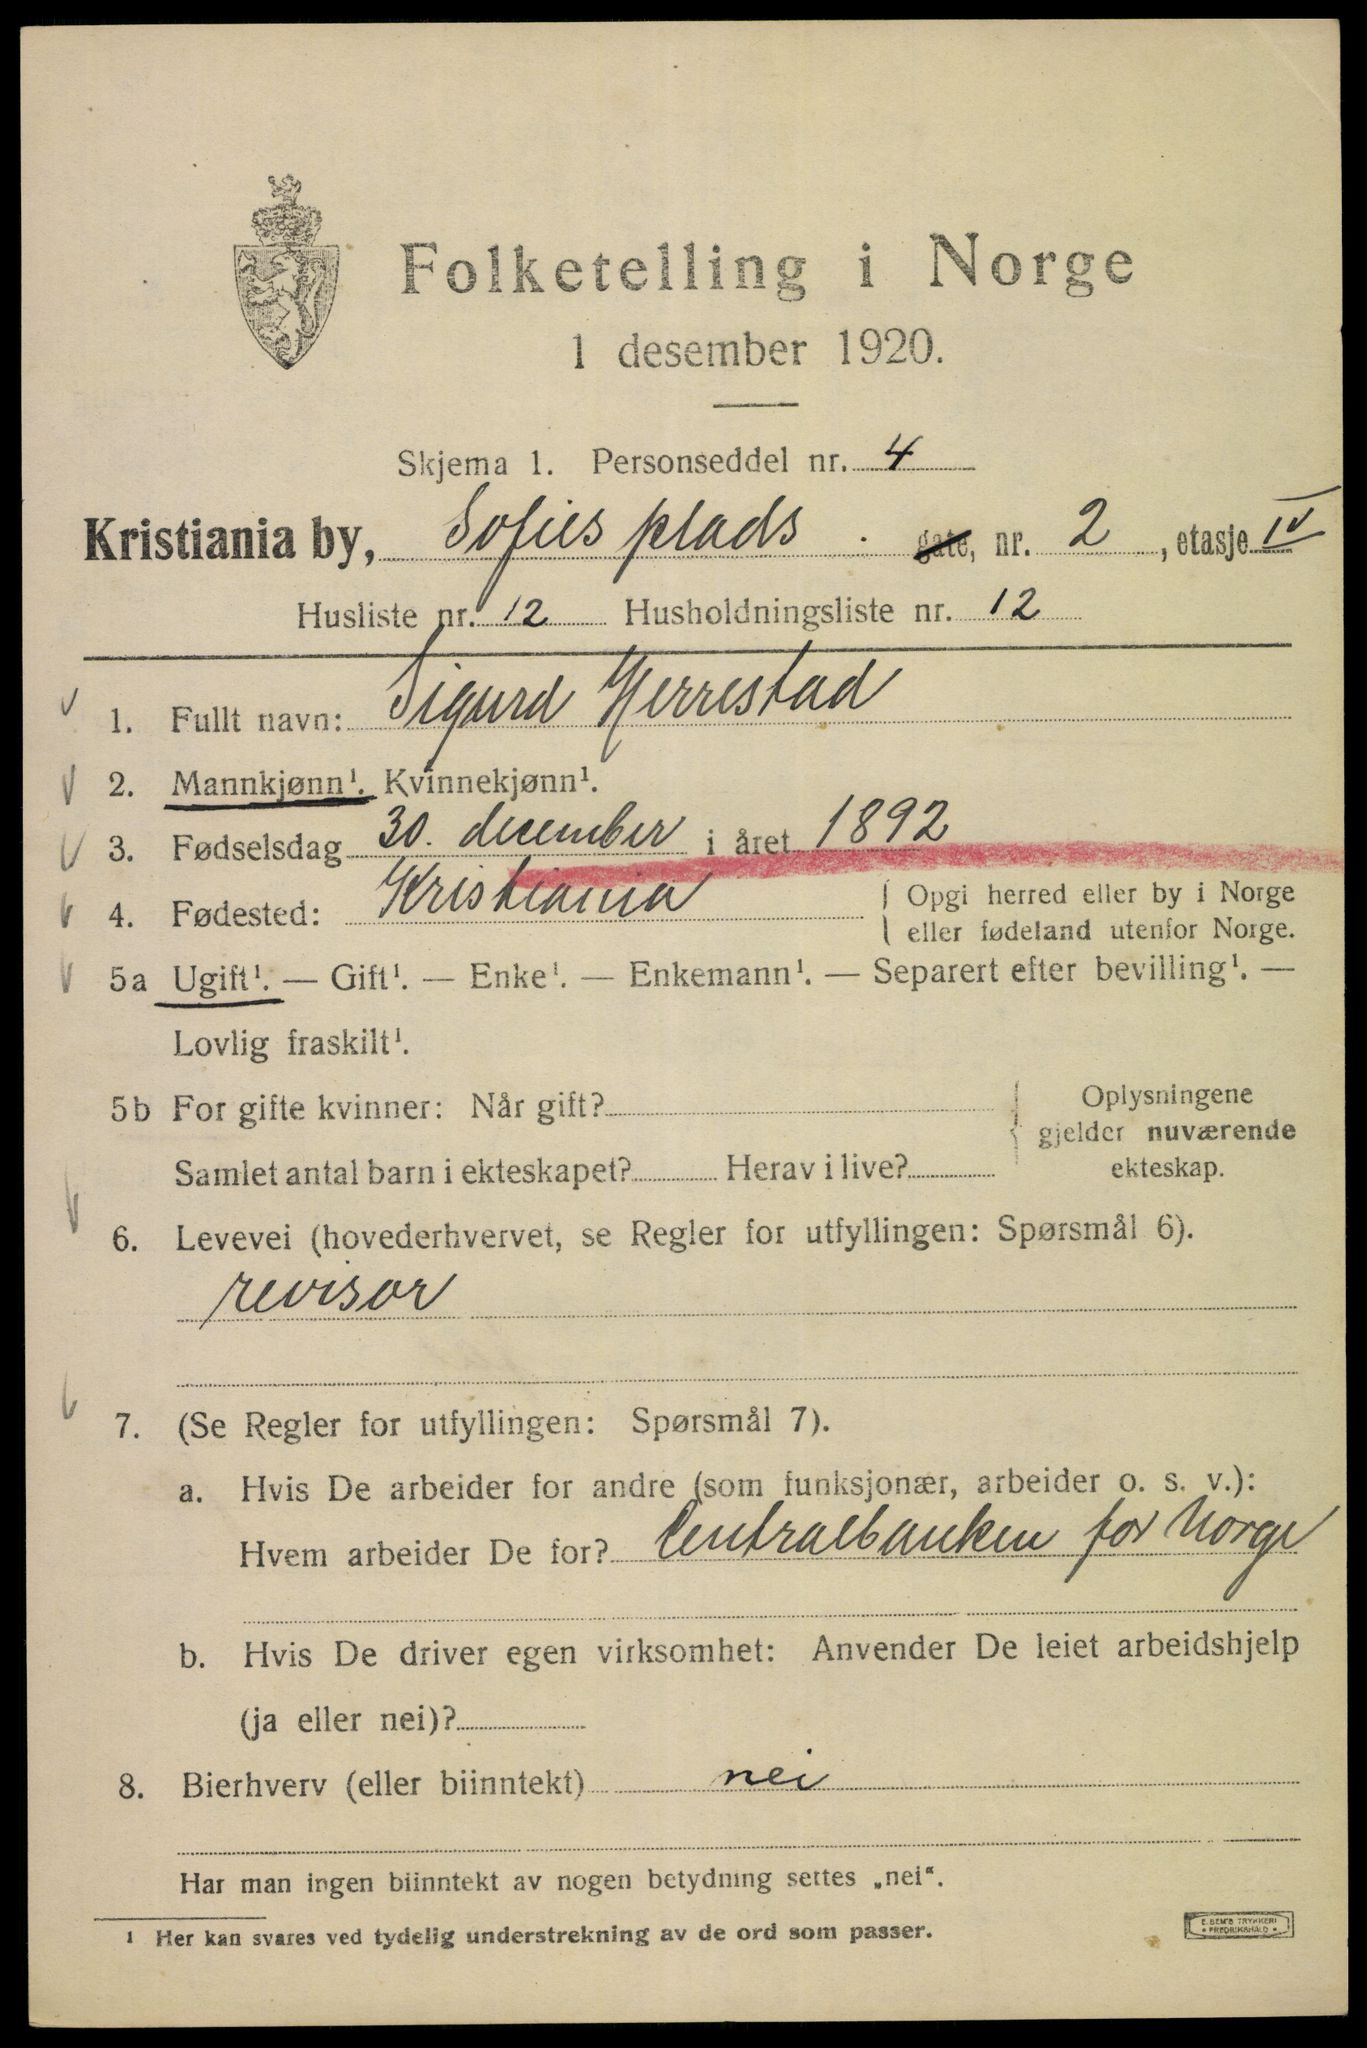 Folketelling i Norge
1 desember 1920.
Skjema 1. Personseddel nr. 4
Kristiania by, Sofies plads. gate, nr. 2, etasje IV
Husliste nr. 12 Husholdningsliste nr. 12
1. Fullt navn: Sigurd Herrestad
2. Mannkjønn¹. Kvinnekjønn¹.
3. Fødselsdag 30. december i året 1892
4. Fødested: Kristiania { Opgi herred eller by i Norge
eller fødeland utenfor Norge.
5a Ugift¹. — Gift¹. — Enke¹. — Enkemann¹. — Separert efter bevilling¹. —
Lovlig fraskilt¹.
5b For gifte kvinner: Når gift? { Oplysningene
gjelder nuværende
Samlet antal barn i ekteskapet? Herav i live? ekteskap.
6. Levevei (hovederhvervet, se Regler for utfyllingen: Spørsmål 6).
revisor
7. (Se Regler for utfyllingen: Spørsmål 7).
a. Hvis De arbeider for andre (som funksjonær, arbeider o. s. v.):
Hvem arbeider De for? Centralbanken for Norge
b. Hvis De driver egen virksomhet: Anvender De leiet arbeidshjelp
(ja eller nei)?
8. Bierhverv (eller biinntekt) nei
Har man ingen biinntekt av nogen betydning settes „nei“.
¹ Her kan svares ved tydelig understrekning av de ord som passer.
E. SEM'S TRYKKERI
• FREDRIKSHALD •